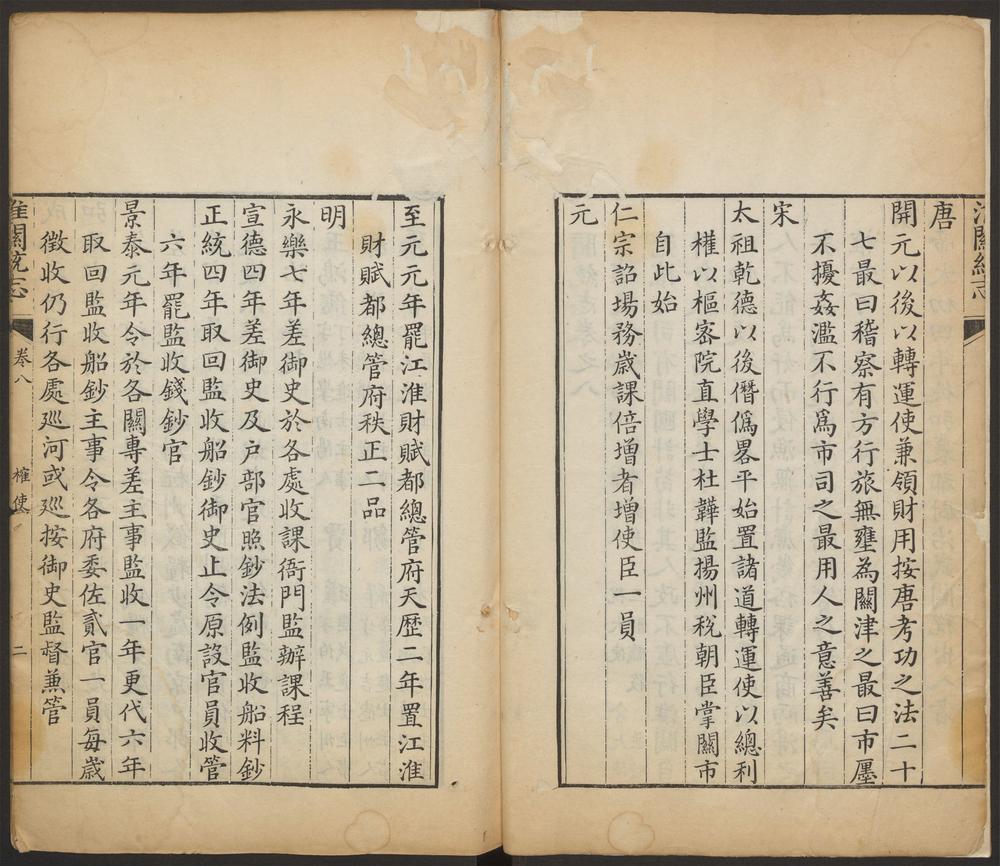 唐
開元以後以轉運使兼領財用按唐考功之法二十
七最曰稽察有方行旅無壅為關津之最曰市廛
不擾姦濫不行爲市司之最用人之意善矣
宋
太祖乾德以後僭僞畧平始置諸道轉運使以總利
權以樞密院直學士杜韡監揚州稅朝臣掌關市
自此始
仁宗詔塲務歲課倍增者增使臣一員
元
至元元年罷江淮財賦都總管府天歷二年置江淮
財賦都總管府秩正二品
明
永樂七年差御史於各處收課衙門監辦課程
宣德四年差御史及戶部官照鈔法例監收船料鈔
正統四年取回監收船鈔御史止令原設官員收管
六年罷監收錢鈔官
景泰元年令於各關專差主事監收一年更代六年
取回監收船鈔主事令各府委佐貳官一員每歲
徵收仍行各處廵河或廵按御史監督兼管
淮關統志
卷八
榷使
二